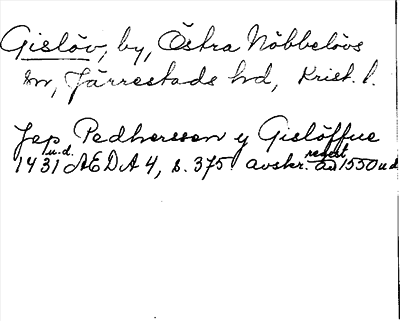 Gislöv, by, Östra Nöbbelövs
sn, Järrestads hd, Krist. l.
Jep Pedhersson y Gislöffue
u.d. regest
1431 AEDA 4, s. 375 avskr. av 1550 u.d.